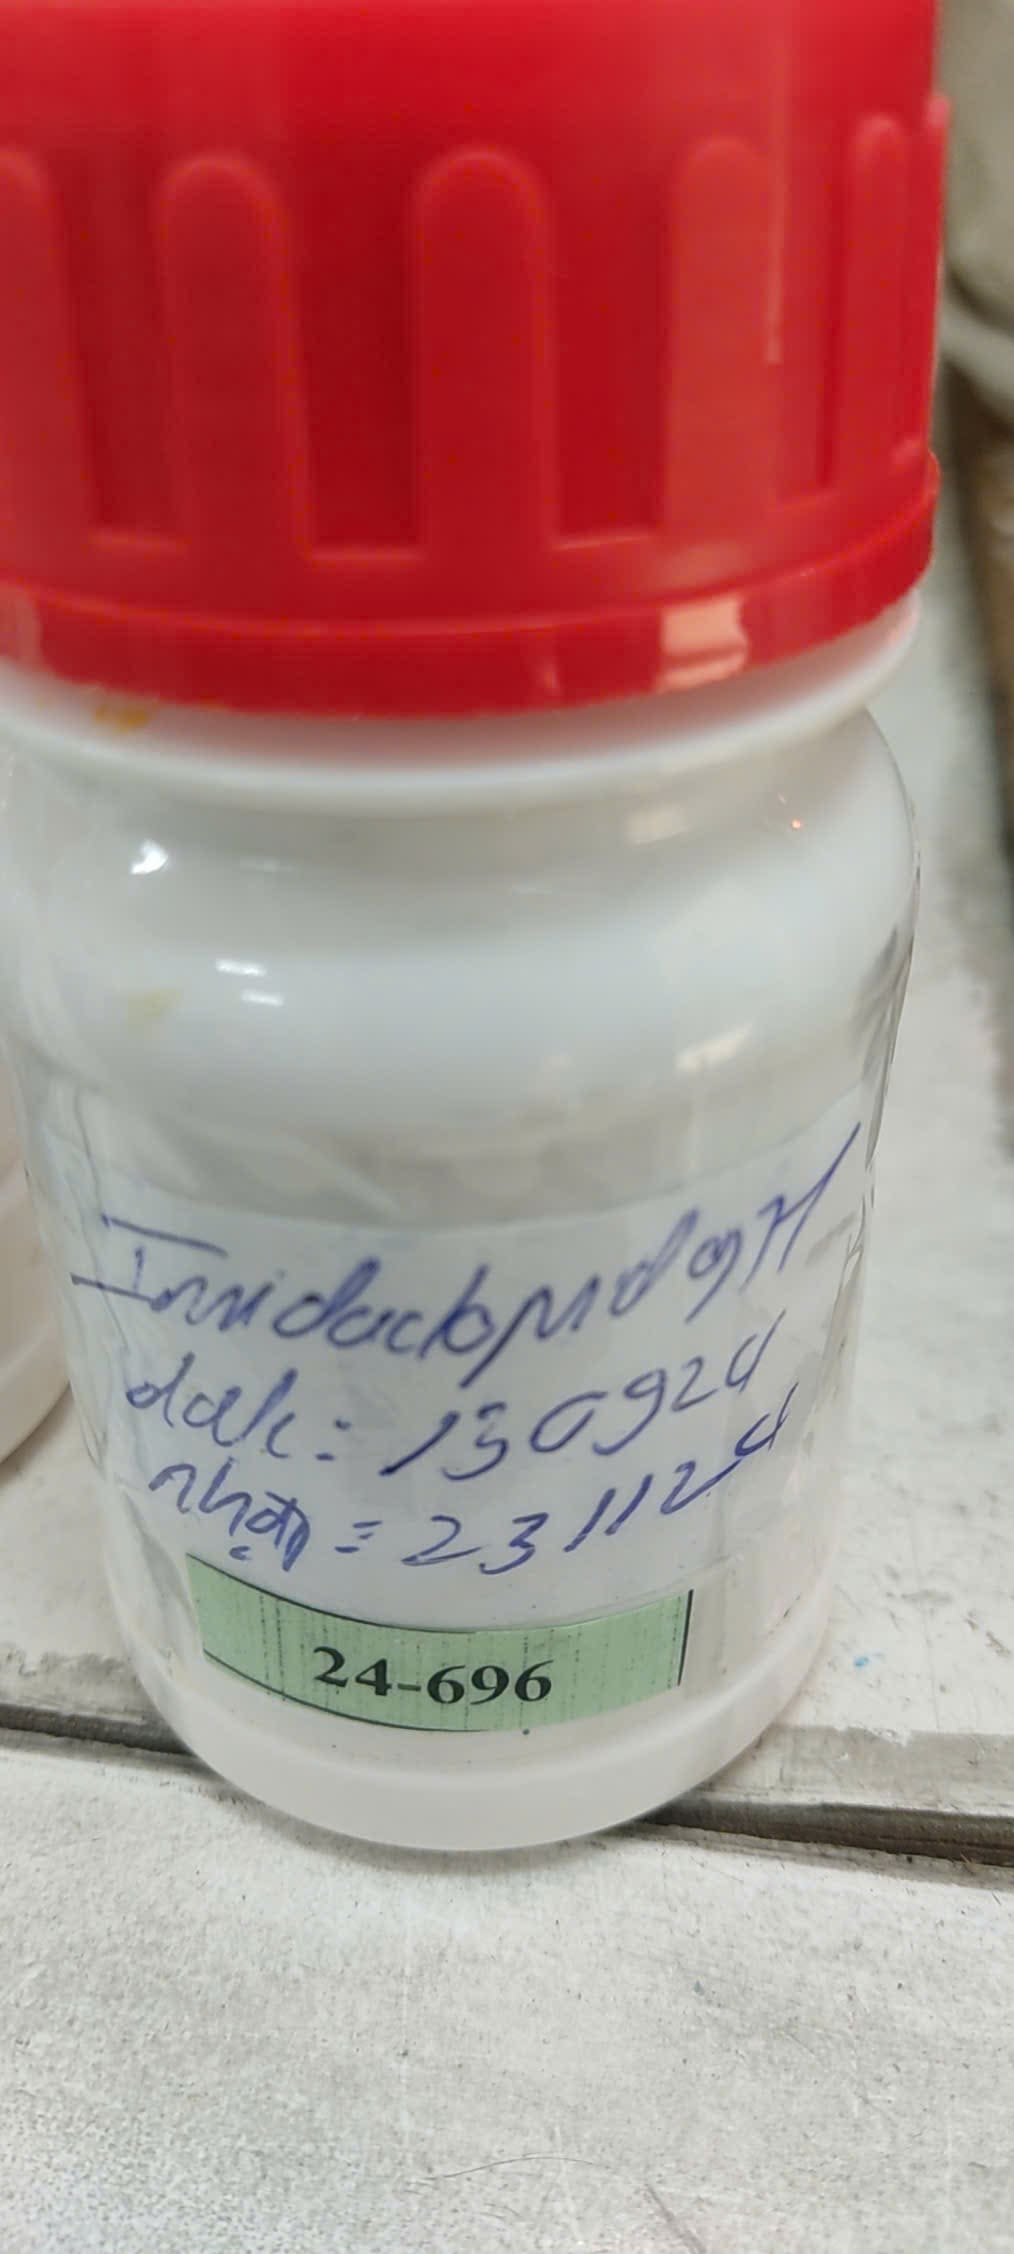 Imidacloprid 97%
date: 130924
nhận: 231124
24-696